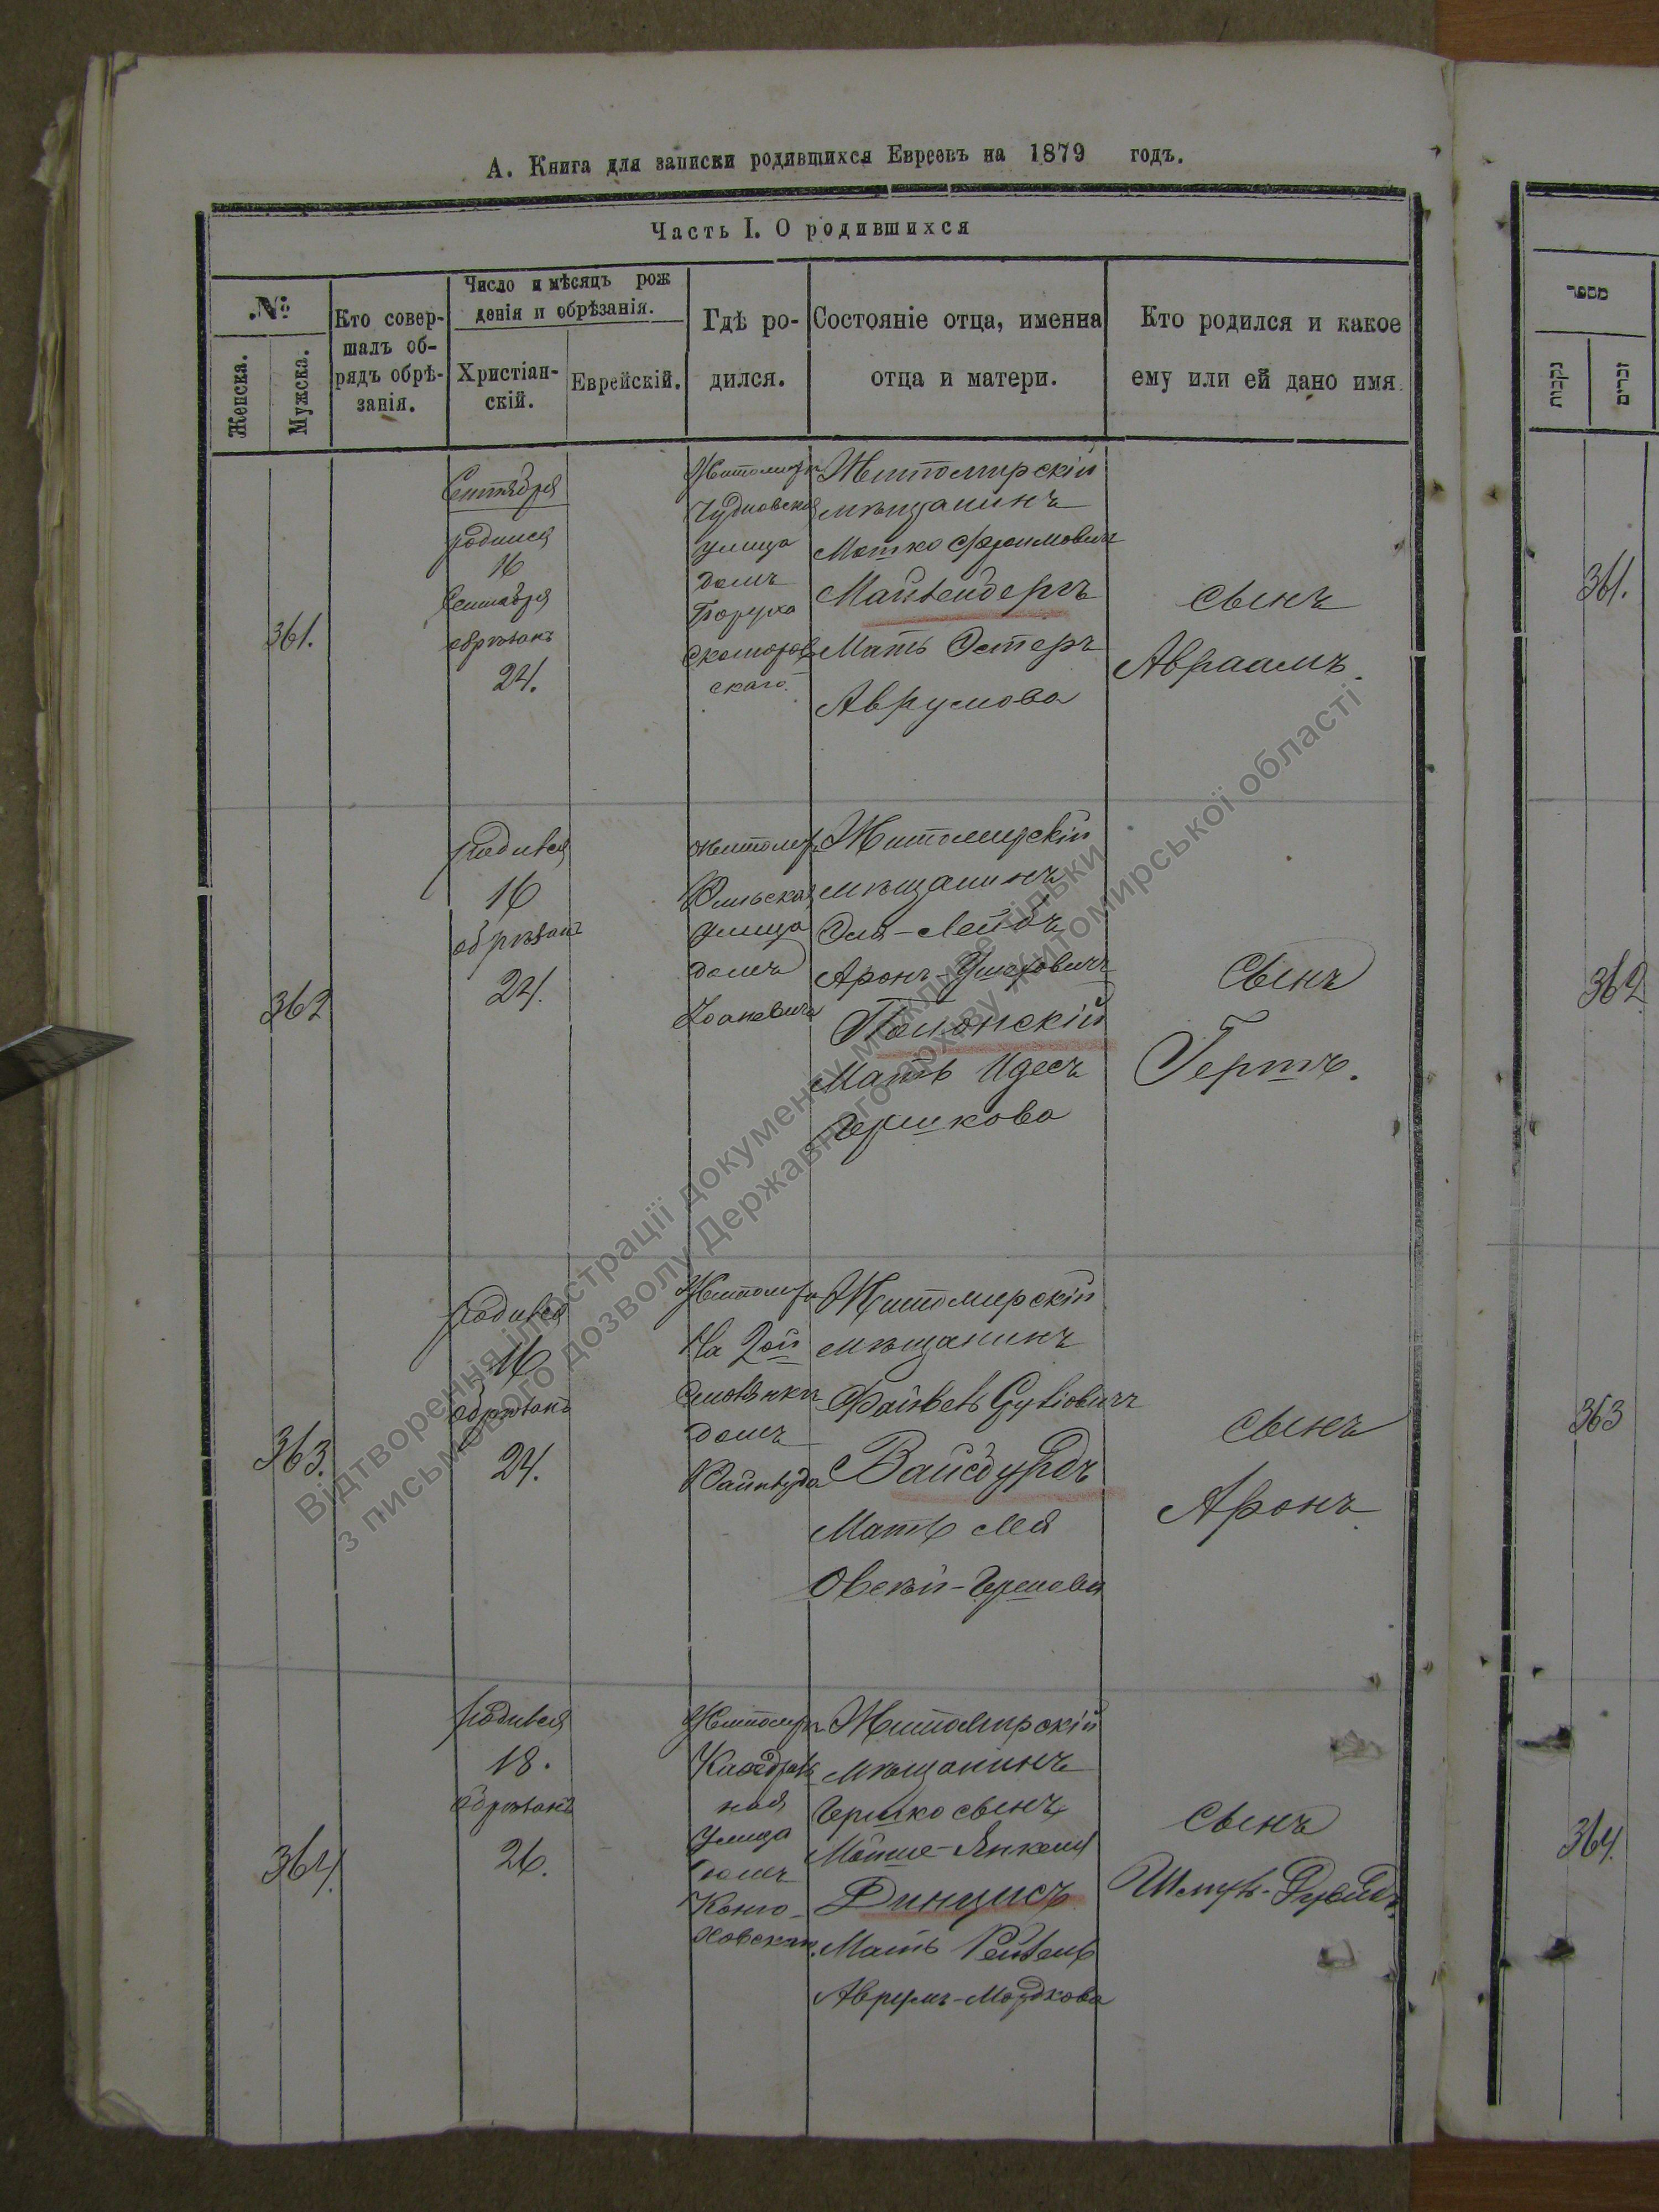 А. Книга для записки родившихся Евреевъ на 1879 годъ.
Часть I. О родившихся
№
Женска.
Мужска.
Кто совер-
шалъ об-
рядъ обрѣ-
занія.
Число и мѣсяцъ рож
денія и обрѣзанія.
Христіан-
скій.
Еврейскій.
Гдѣ ро-
дился.
Состояніе отца, именна
отца и матери.
Кто родился и какое
ему или ей дано имя
361.
Сентября
родился
16
Сентября
обрѣзанъ
24.
Житомиръ
Чудновская
улица
домъ
Боруха
скаго.
Житомирскій
мѣщанинъ
Мошко Фроимовичъ
Мать Эстеръ
Аврумова
сынъ
Авраамъ.
362
родился
16
обрѣзанъ
24.
Житомиръ
улица
домъ
Житомирскій
мѣщанинъ
Эля-Лейбъ
Аронъ-Ушеровичъ
Полонскій
Мать Идесъ
Гершкова
Сынъ
Гершъ.
363.
родился
16
обрѣзанъ
24.
Житомиръ
На 2ой
домъ
Житомирскій
мѣщанинъ
Вайсбурдъ
Мать Лея
сынъ
Аронъ.
364.
родился
18.
обрѣзанъ
26.
Житомиръ
ная
улица
домъ
Житомирскій
мѣщанинъ
Гершко сынъ
Мойше-Янкеля
Динцисъ
Мать
Аврумъ-Мордкова
Сынъ
מספר
נקבות
זכרים
361.
362
363
364.
Відтворення ілюстрації документу можливе тільки
з письмового дозволу Державного архіву Житомирської області